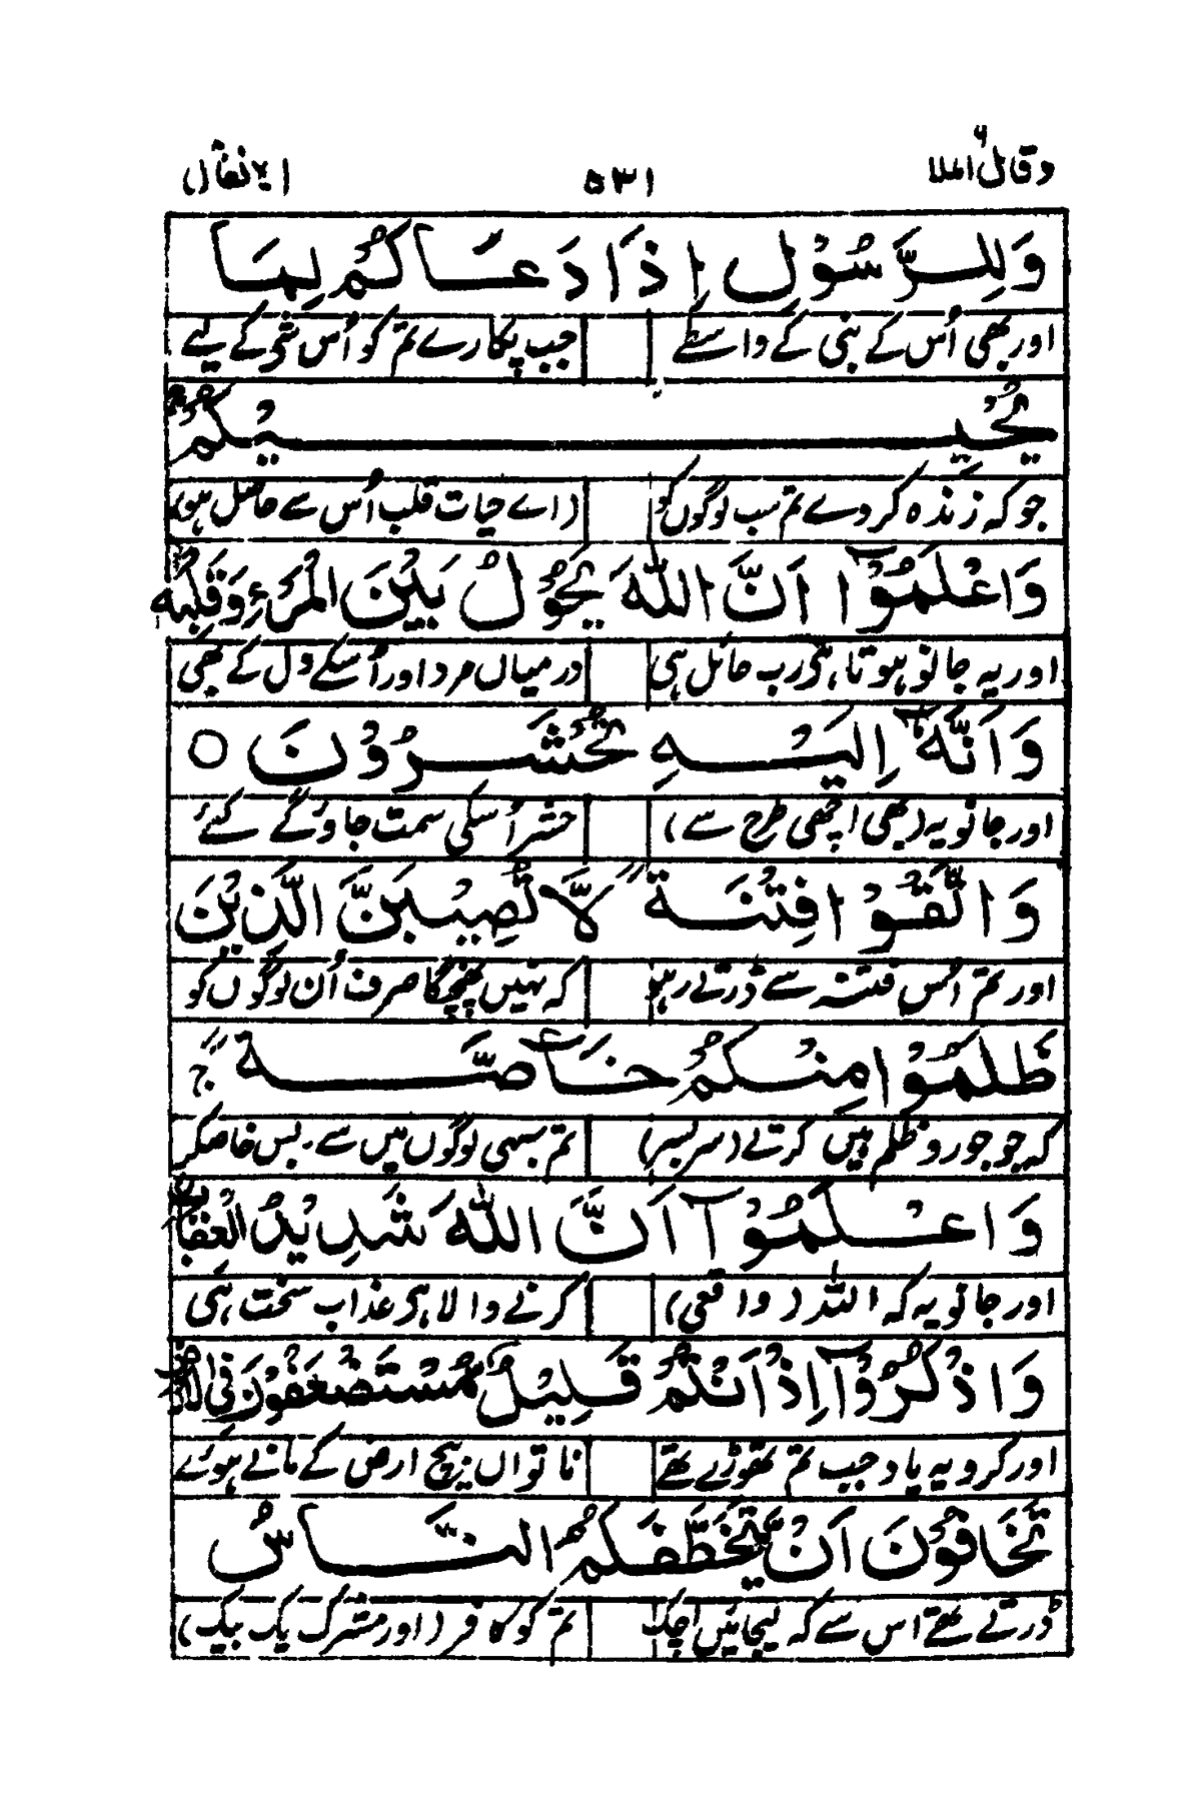 وقال الملا ٩ ٥٣١ الانفال ٨
وَلِلرَّسُوْلِ اِذَا دَعَاكُمْ لِمَا
اور بھی اُس کے نبی کے واسطے جب پکارے تم کو اُس شی کے لیے
يُحْيِيْكُمْ
جو کہ زندہ کردے تم سب لوگوں کو (اے حیات قلب اُس سے حاصل ہو)
وَاعْلَمُوْٓا اَنَّ اللّٰهَ يَحُوْلُ بَيْنَ الْمَرْءِ وَقَلْبِهٖ
اور یہ جانو ہوتا ہی رب حائل ہی درمیاں مرد اور اُسکے دل کے بھی
وَاَنَّهٗٓ اِلَيْهِ تُحْشَرُوْنَ ○
اور جانو یہ (بھی اچھی طرح سے) حشر اُسکی سمت جاؤگے کئے
وَاتَّقُوْا فِتْنَةً لَّا تُصِيْبَنَّ الَّذِيْنَ
اور تم اُس فتنہ سے ڈرتے رہو کہ نہیں پہنچیگا صرف اُن لوگوں کو
ظَلَمُوْا مِنْكُمْ خَآصَّةً ج
کہ جو جور و ظلم ہیں کرتے (سر بسر) تم سبھی لوگوں میں سے۔ بس خاصکر
وَاعْلَمُوْٓا اَنَّ اللّٰهَ شَدِيْدُ الْعِقَابِ
اور جانو یہ کہ اللہ (واقعی) کرنے والا ہی عذاب سخت ہی
وَاذْكُرُوْٓا اِذْ اَنْتُمْ قَلِيْلٌ مُّسْتَضْعَفُوْنَ فِى الْاَرْضِ
اور کرو یہ یاد جب تم تھوڑے تھے ناتواں بیچ ارض کے مانے ہوئے
تَخَافُوْنَ اَنْ يَّتَخَطَّفَكُمُ النَّاسُ
ڈرتے تھے اس سے کہ لیجائیں اچک تم کو کافر (اور مشرک یک بیک)